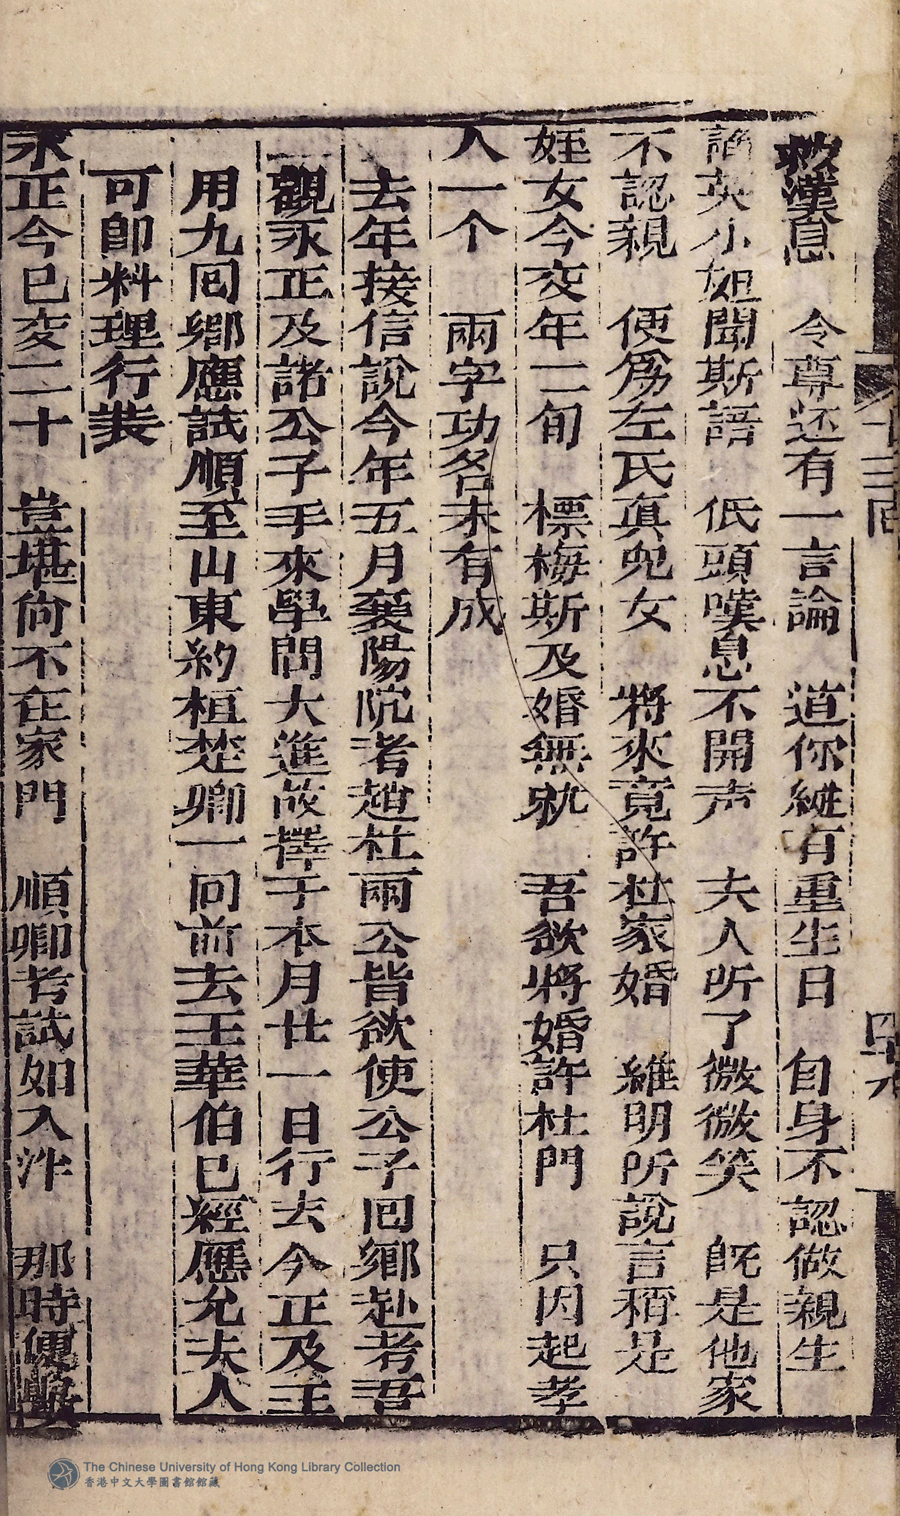 歎息　令尊还有一言論　道你縱有重生日　自身不認做親生
英小姐聞斯語　低頭嘆息不開声　夫人听了微微笑　旣是他家
不認親　便爲左氏真兒女　將來竟許杜家婚　維明所說言稱是
姪女今交年二旬　標梅斯及婚無𡉏　吾欲將婚許杜門　只因起孝
人一个　兩字功名未有成
去年接信說今年五月襄陽院考趙杜兩公皆欲使公子囘鄉赴考吾
觀永正及諸公子手來學問大進故擇于本月廿一日行去今正及王
用九囘鄉應試順至山東約桓楚卿一同前去王華伯已經應允夫人
可卽料理行裝
永正今已交二十　豈堪尙不在家門　順卿考試如入泮　那時便娶
十三囘
The Chinese University of Hong Kong Library Collection
香港中文大學圖書館館藏